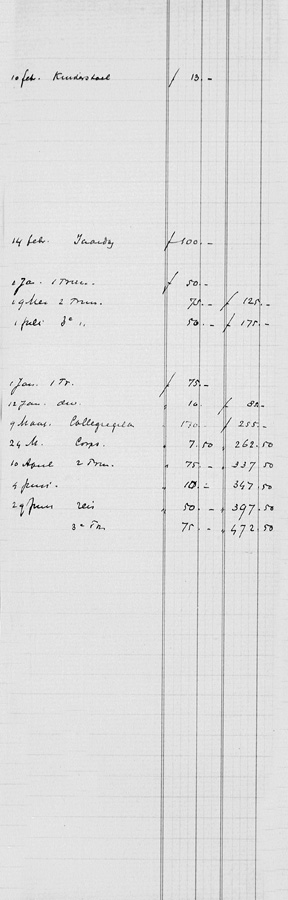 10 febr. Kinderstoel ƒ 13.-
14 febr. ƒ 100.-
1 Jan. 1 Trim. ƒ 50.-
29 Mei 2 Trim. 75.- ƒ 125.-
1 Juli 3e " 50.- ƒ 175.-
1 Jan. 1 Tr. ƒ 75.-
12 Jan. div. " 10 ƒ 85.-
9 Maart Collegegeld " 170.- ƒ 255.-
24 M. Corps. " 7.50 " 262.50
10 April 2 Trim. " 75.- " 337.50
9 Juni. " 10.- " 347.50
29 Juni reis " 50.- " 397.50
3e Trim " 75.- " 472.50